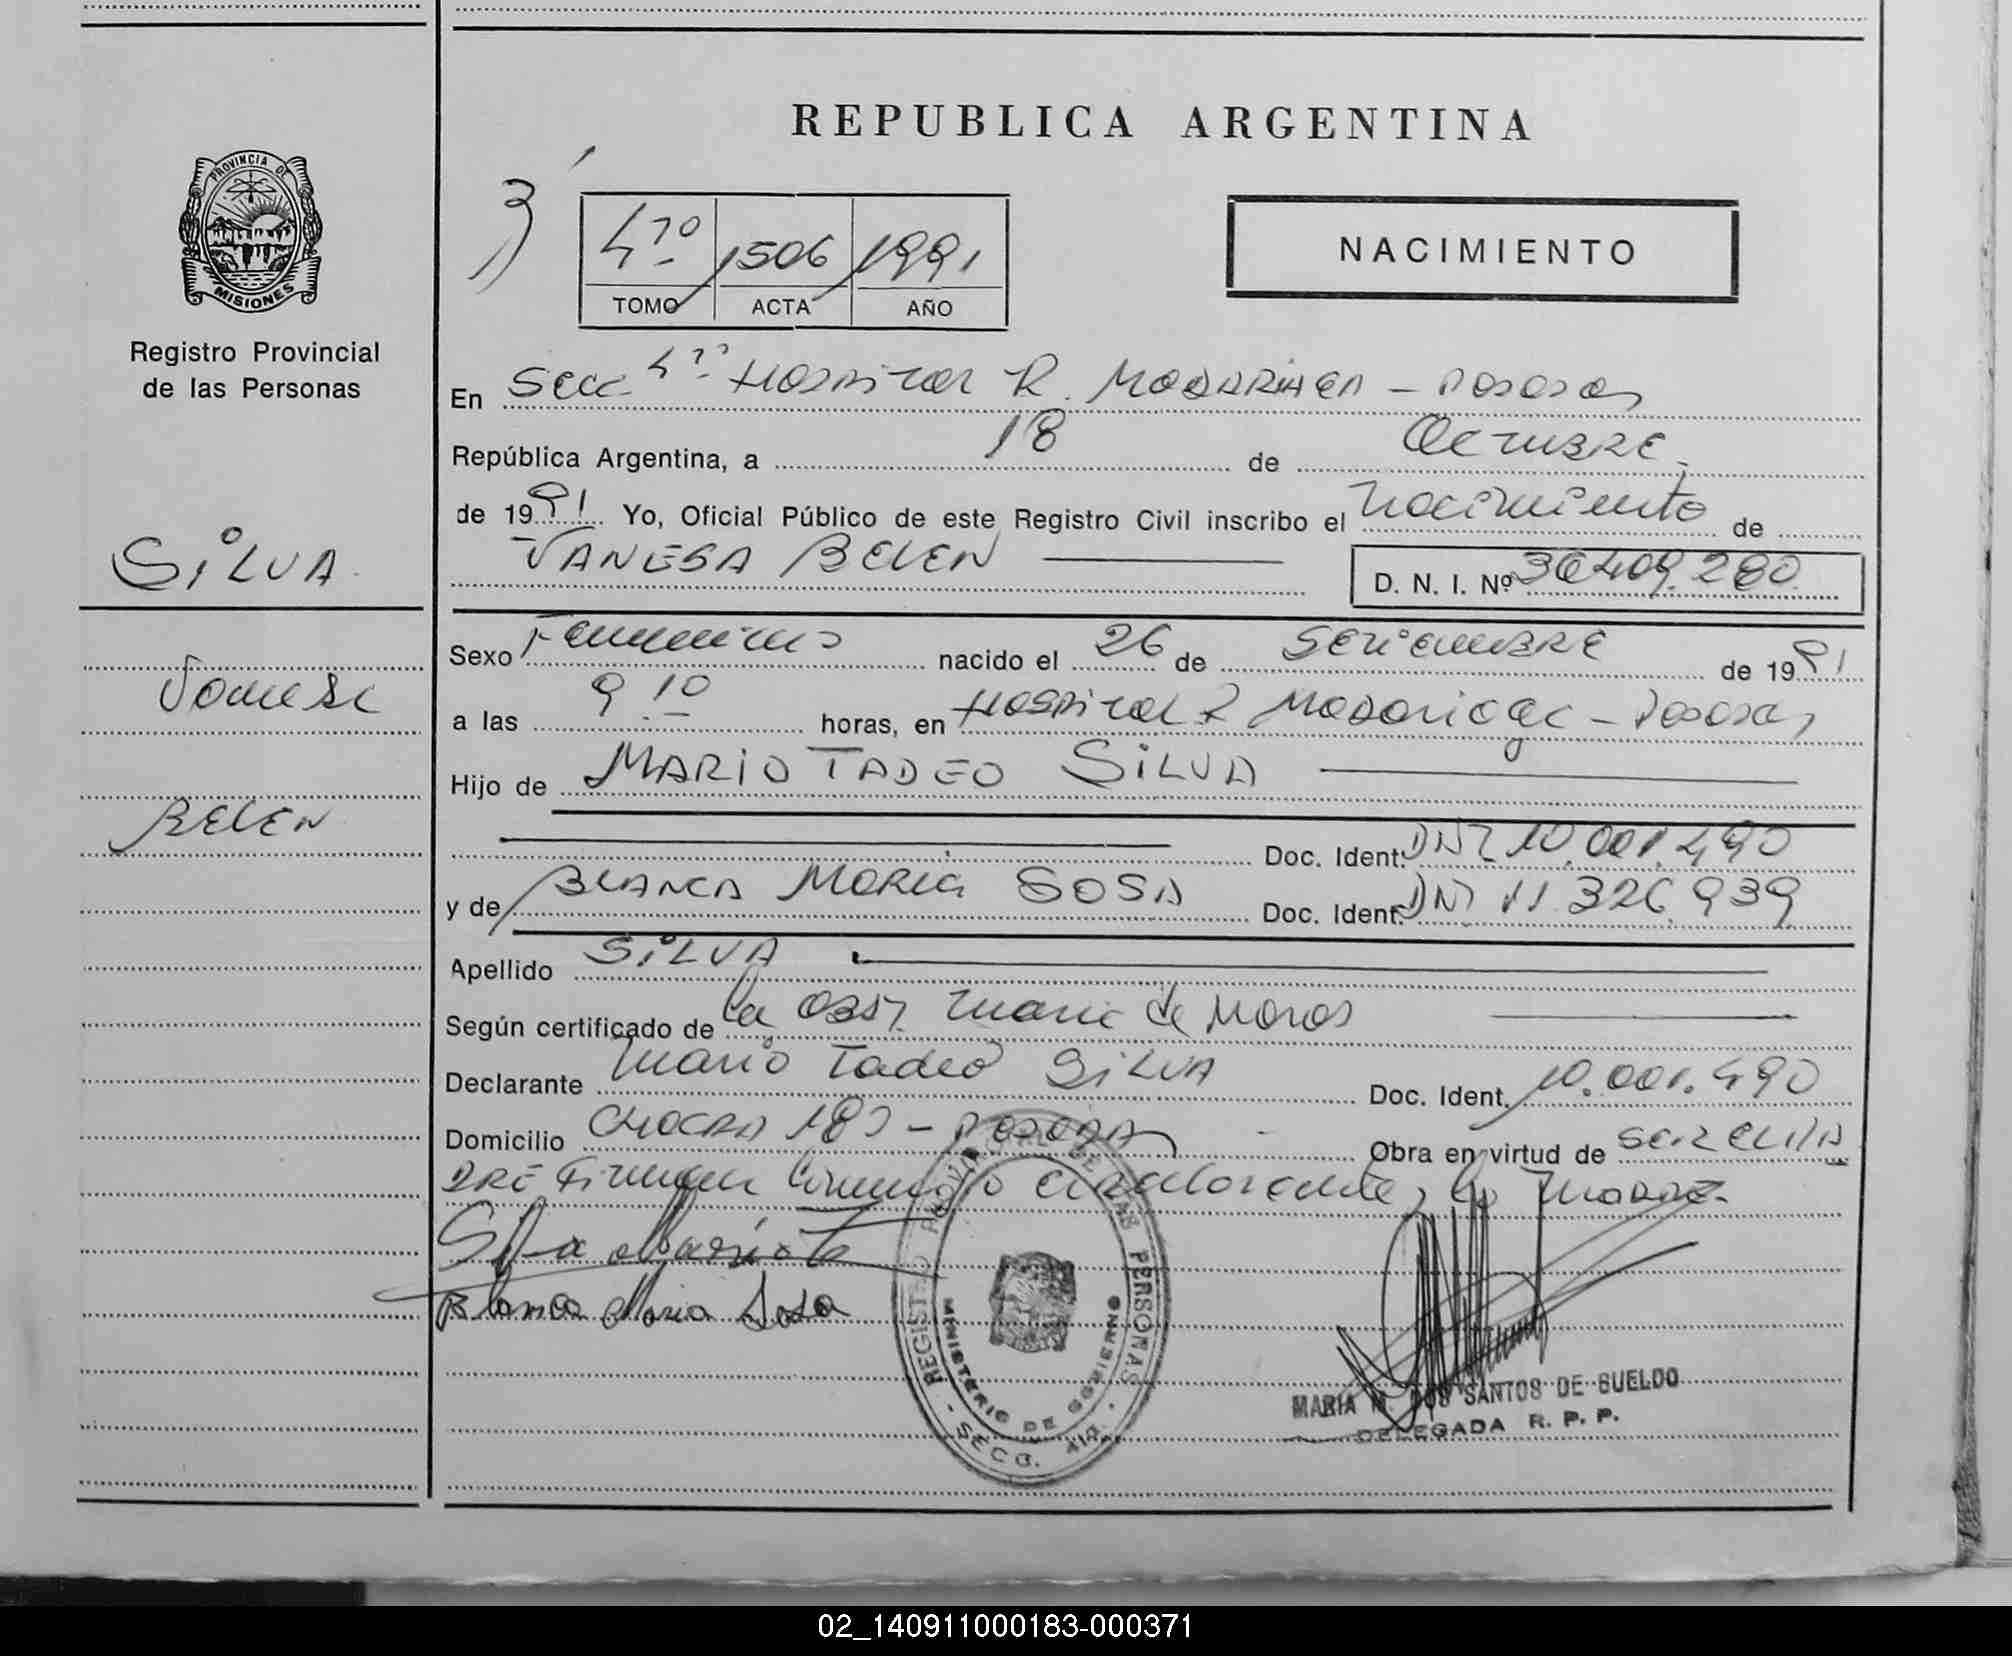 PROVINCIA DE
MISIONES
Registro Provincial
de las Personas
SILVA
Vanesa
BELEN
REPUBLICA ARGENTINA
3)
4TO 1506 1991
TOMO ACTA AÑO
NACIMIENTO
En Secc 4ta Hospital R. MADARIAGA - Posadas
República Argentina, a 18 de Octubre
de 1991 Yo, Oficial Público de este Registro Civil inscribo el nacimiento de
VANESA BELEN
D. N. I. Nº 36.409.280
Sexo Femenino nacido el 26 de Setiembre de 1991
a las 9.10 horas, en Hospital R Madariaga - Posadas
Hijo de MARIO TADEO SILVA
Doc. Ident. DNI 10.001.490
y de BLANCA MARIA SOSA Doc. Ident. DNI 11.326.939
Apellido SILVA
Según certificado de la Obst. Maria de
Declarante Mario Tadeo SILVA Doc. Ident. 10.001.490
Domicilio CHACRA 183 - POSADAS Obra en virtud de
Firman declarante, la Madre
Blanca Maria Sosa
REGISTRO PROVINCIAL DE LAS PERSONAS
MINISTERIO DE GOBIERNO
SECC. 4ta.
MARIA M. DOS SANTOS DE SUELDO
DELEGADA R. P. P.
02_140911000183-000371